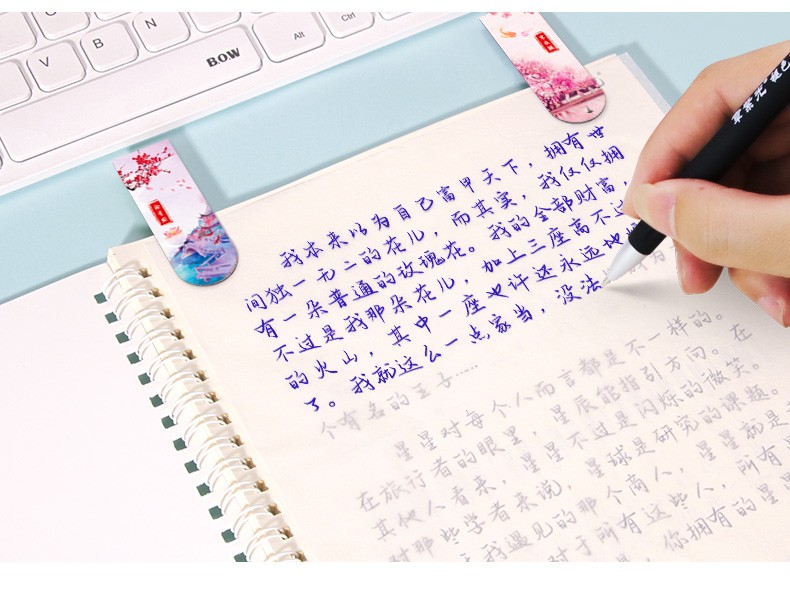 V
B
N
B.O.W
Alt
Ctrl
我本来以为自己富甲天下，拥有世
间独一无二的花儿，而其实，我仅仅拥
有一朵普通的玫瑰花。我的全部财富，
不过是我那朵花儿，加上三座高不过
的火山，其中一座也许还永远地
了。我就这么一点家当，没法
个有名的王子……
星星对每个人而言都是不一样的。在
在旅行者的眼里，星辰能指引方向。在
其他人看来，星星不过是闪烁的微笑。
对那些学者来说，星球是研究的课题。
我遇见的那个商人，星星就是
对于所有这些人，所有
是，你拥有的星星